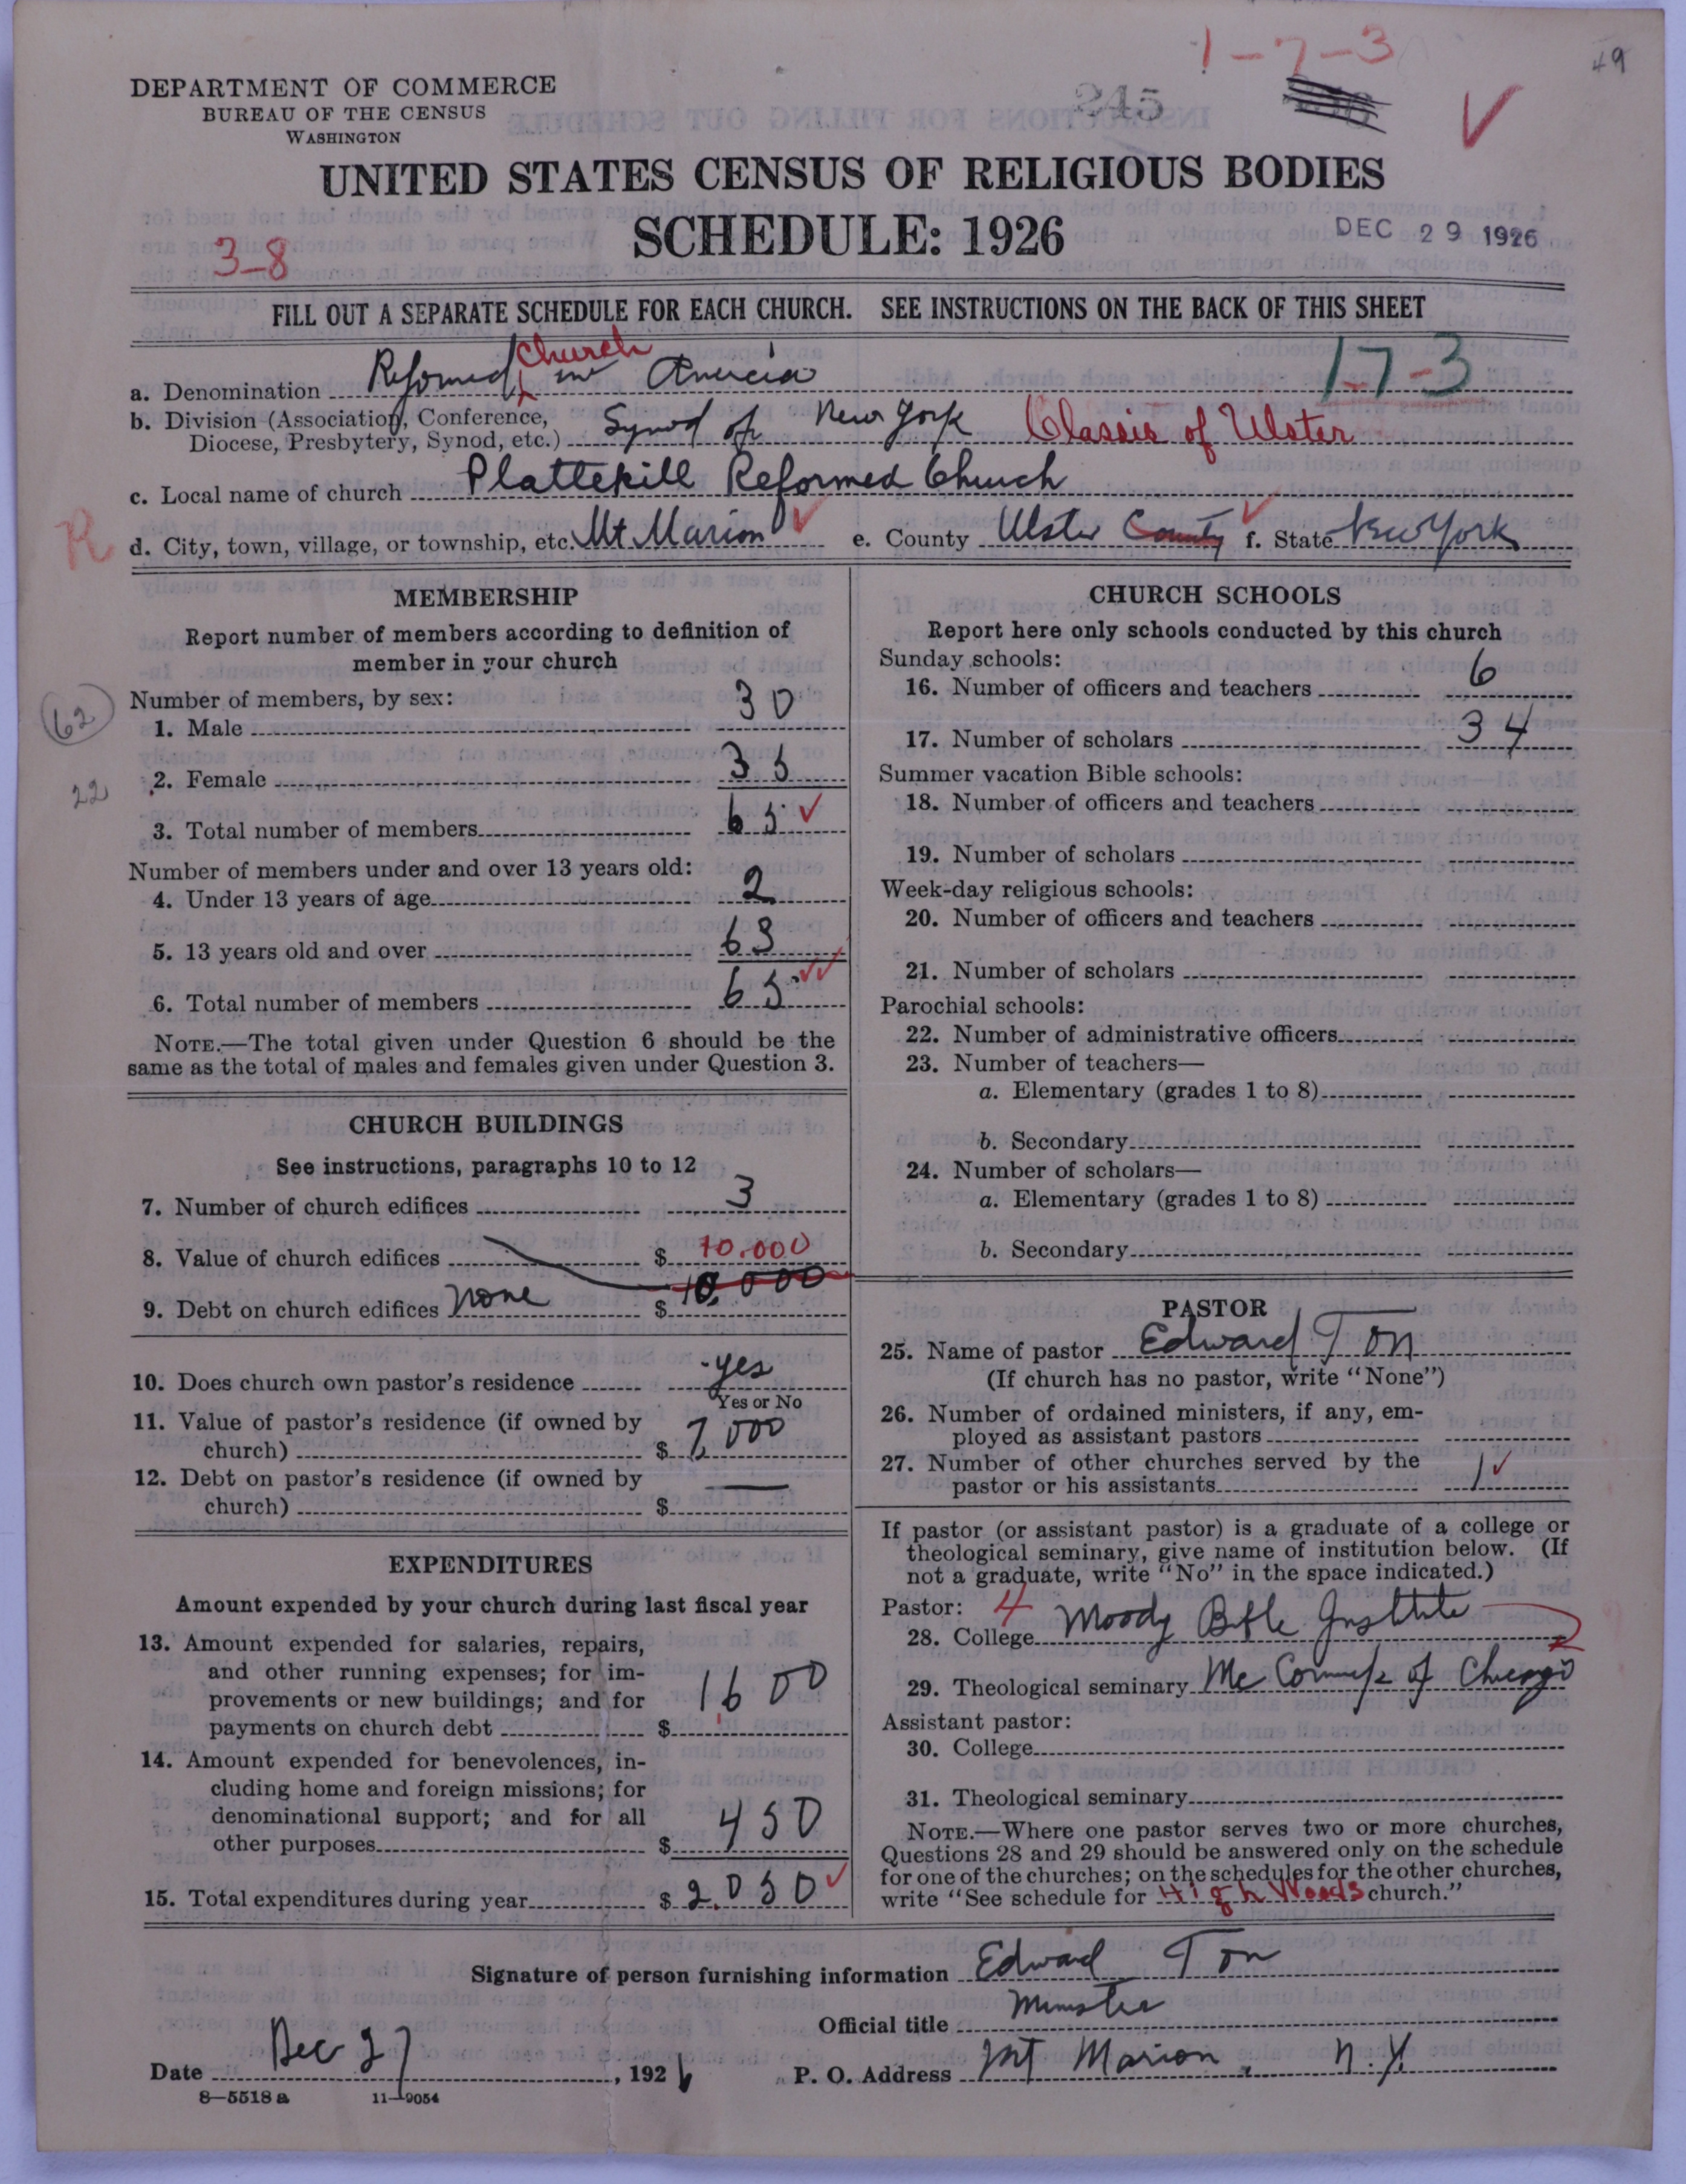 1-7-3
49
DEPARTMENT OF COMMERCE
BUREAU OF THE CENSUS
WASHINGTON
245
UNITED STATES CENSUS OF RELIGIOUS BODIES
SCHEDULE: 1926
DEC 29 1926
3-8
FILL OUT A SEPARATE SCHEDULE FOR EACH CHURCH. SEE INSTRUCTIONS ON THE BACK OF THIS SHEET
a. Denomination Reformed Church in America 1-7-3
b. Division (Association, Conference, Diocese, Presbytery, Synod, etc.) Synod of New York Classis of Ulster
c. Local name of church Plattekill Reformed Church
R
d. City, town, village, or township, etc. Mt Marion e. County Ulster County f. State New York
MEMBERSHIP
Report number of members according to definition of
member in your church
Number of members, by sex:
62
1. Male 30
22
2. Female 35
3. Total number of members 65
Number of members under and over 13 years old:
4. Under 13 years of age 2
5. 13 years old and over 63
6. Total number of members 65
NOTE.—The total given under Question 6 should be the
same as the total of males and females given under Question 3.
CHURCH BUILDINGS
See instructions, paragraphs 10 to 12
7. Number of church edifices 3
8. Value of church edifices $ 10.000
9. Debt on church edifices none $ 10,000
10. Does church own pastor's residence yes
Yes or No
11. Value of pastor's residence (if owned by
church) $ 7,000
12. Debt on pastor's residence (if owned by
church) $ —
EXPENDITURES
Amount expended by your church during last fiscal year
13. Amount expended for salaries, repairs,
and other running expenses; for im-
provements or new buildings; and for
payments on church debt $ 1600
14. Amount expended for benevolences, in-
cluding home and foreign missions; for
denominational support; and for all
other purposes $ 450
15. Total expenditures during year $ 2.050
CHURCH SCHOOLS
Report here only schools conducted by this church
Sunday schools:
16. Number of officers and teachers 6
17. Number of scholars 34
Summer vacation Bible schools:
18. Number of officers and teachers
19. Number of scholars
Week-day religious schools:
20. Number of officers and teachers
21. Number of scholars
Parochial schools:
22. Number of administrative officers
23. Number of teachers—
a. Elementary (grades 1 to 8)
b. Secondary
24. Number of scholars—
a. Elementary (grades 1 to 8)
b. Secondary
PASTOR
25. Name of pastor Edward Ton
(If church has no pastor, write "None")
26. Number of ordained ministers, if any, em-
ployed as assistant pastors
27. Number of other churches served by the
pastor or his assistants 1
If pastor (or assistant pastor) is a graduate of a college or
theological seminary, give name of institution below. (If
not a graduate, write "No" in the space indicated.)
Pastor: 4
28. College Moody Bible Institute
29. Theological seminary Mc Cormick of Chicago
Assistant pastor:
30. College
31. Theological seminary
NOTE.—Where one pastor serves two or more churches,
Questions 28 and 29 should be answered only on the schedule
for one of the churches; on the schedules for the other churches,
write "See schedule for High Woods church."
Signature of person furnishing information Edward Ton
Official title Minister
Date Dec 27, 1926 P. O. Address Mt Marion, N.Y.
8—5518 a 11—9054